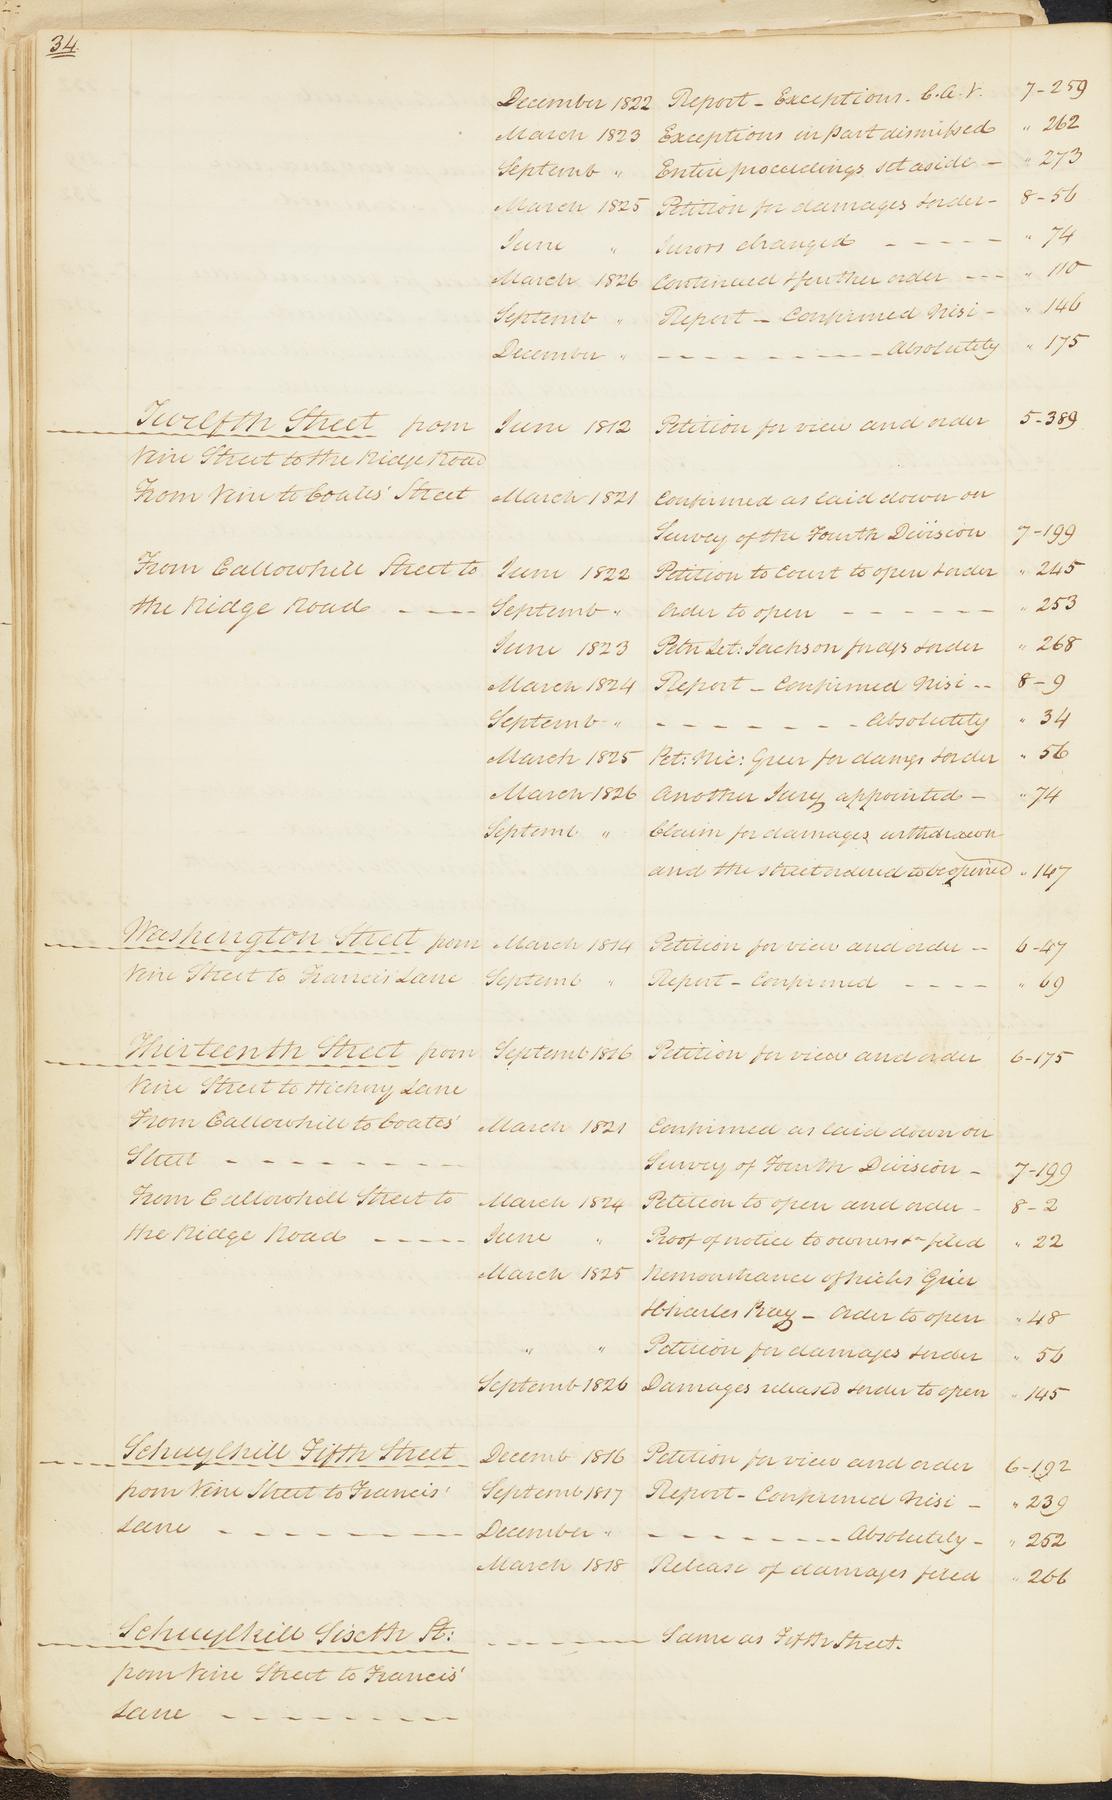 34
December 1822 Report - Exceptions - C.A.V. 7-259
March 1823 Exceptions in part dismissed " 262
Septemb " Entire proceedings set aside - " 273
March 1825 Petition for damages & order - 8-56
June " Jurors changed - - - - - " 74
March 1826 Continued & further order - - - " 110
Septemb " Report - Confirmed Nisi - " 146
December " - - - - - - - - - Absolutely " 175
Twelfth Street from June 1812 Petition for view and order 5-389
Vine Street to the Ridge Road
From Vine to Coates' Street March 1821 Confirmed as laid down on
Survey of the Fourth Division 7-199
From Callowhill Street to June 1822 Petition to Court to open & order " 245
the Ridge Road - - - - Septemb " Order to open - - - - - - " 253
June 1823 Petn Jackson for & order " 268
March 1824 Report - Confirmed Nisi - - 8-9
Septemb " - - - - - - - Absolutely " 34
March 1825 Pet: Nic: Grier for damgs & order " 56
March 1826 Another Jury appointed - " 74
Septemb " Claim for damages withdrawn
and the street ordered to be opened " 147
Washington Street from March 1814 Petition for view and order - - 6-47
Vine Street to Francis' Lane Septemb " Report - Confirmed - - - - " 69
Thirteenth Street from Septemb 1816 Petition for view and order 6-175
Vine Street to Hickory Lane
From Callowhill to Coates' March 1821 Confirmed as laid down on
Street - - - - - - - - - Survey of Fourth Division - 7-199
From Callowhill Street to March 1824 Petition to open and order - 8-2
the Ridge Road - - - - - June " Proof of notice to owners &c filed " 22
March 1825 Remonstrance of Grier
& Charles Ray - Order to open " 48
" " Petition for damages & order " 56
Septemb 1826 Damages released & order to open " 145
Schuylkill Fifth Street Decemb 1816 Petition for view and order 6-192
from Vine Street to Francis' Septemb 1817 Report - Confirmed Nisi - " 239
Lane - - - - - - - - - December " - - - - - - - Absolutely - " 252
March 1818 Release of damages filed " 266
Schuylkill Sixth St: - - - - - - - Same as Fifth Street.
from Vine Street to Francis'
Lane - - - - - - - - -